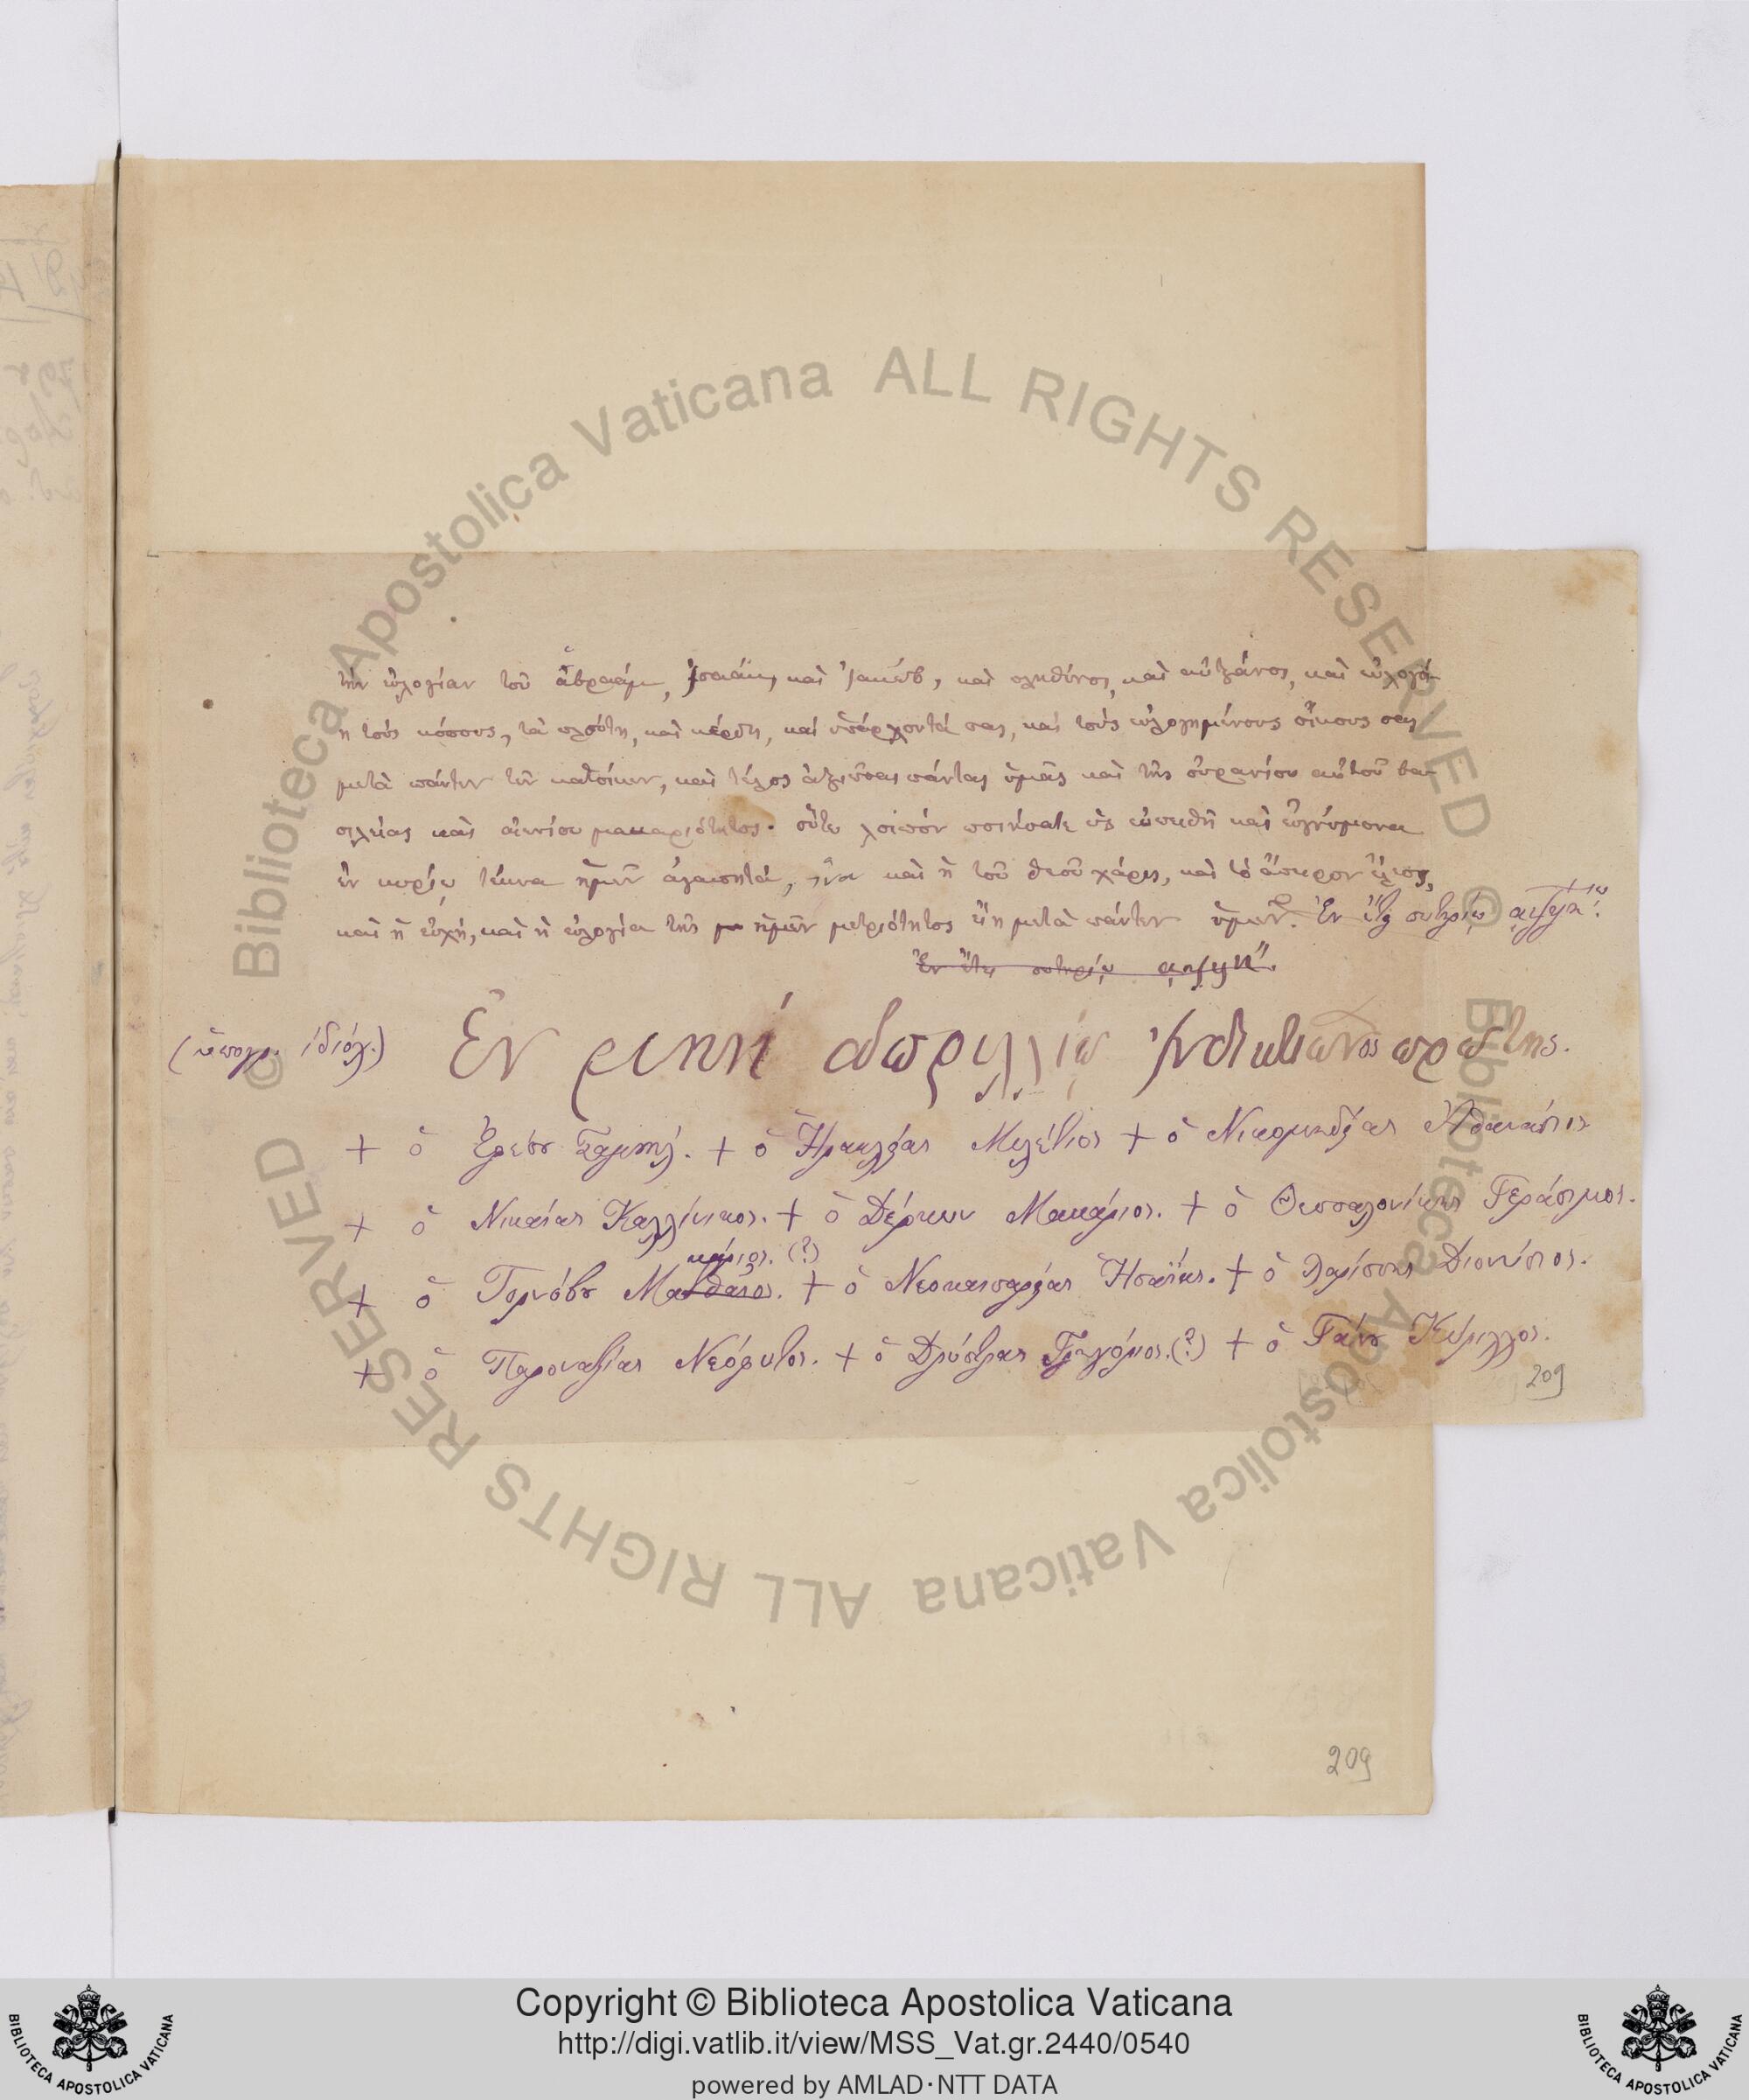 τὴν εὐλογίαν τοῦ ἀβραάμ, ἰσαάκ, καὶ Ἰακώβ, καὶ πληθύνος, καὶ αὐξάνος, καὶ εὐλογῶ-
ν τοὺς κόπους, τὰ πλούτη, καὶ κέρδη, καὶ ὑπάρχοντά σας, καὶ τοὺς εὐλογημένους οἴκους σας
μετὰ πάντων τῶν κατοίκων, καὶ τέλος ἀξιῶσας πάντας ὑμᾶς καὶ τῆς οὐρανίου αὐτοῦ βα-
σιλείας καὶ αἰωνίου μακαριότητος. οὕτω λοιπὸν ποιήσατε ὡς εὐπειθῆ καὶ εὐγνώμονα
ἐν κυρίῳ τέκνα ἡμῶν ἀγαπητά, ἵνα καὶ ἡ τοῦ θεοῦ χάρις, καὶ τὸ ἄπειρον ἔλεος,
καὶ ἡ εὐχή, καὶ ἡ εὐλογία τῆς ἡμῶν μετριότητος εἴη μετὰ πάντων ὑμῶν. Ἐν ἔτει σωτηρίῳ
Ἐν ἔτει σωτηρίῳ
(ὑπογρ. ἰδιόχ.) Ἐν μηνὶ ἀπριλλίῳ Ἰνδικτιῶνος πρώτης.
+ ὁ Ἐφέσου Σαμουήλ. + ὁ Ἡρακλείας Μελέτιος + ὁ Νικομηδείας Ἀθανάσιος
+ ὁ Νικαίας Καλλίνικος. + ὁ Δέρκων Μακάριος. + ὁ Θεσσαλονίκης Γεράσιμος.
κάριος. (?)
+ ὁ Τορνόβου Ματθαῖος. + ὁ Νεοκαισαρείας Ἡσαΐας. + ὁ Λαρίσσης Διονύσιος.
+ ὁ Παροναξίας Νεόφυτος. + ὁ Δρύστρας Γρηγόριος. (?) + ὁ Γάνου Κύριλλος.
209
209
Biblioteca Apostolica Vaticana ALL RIGHTS RESERVED ©
Biblioteca Apostolica Vaticana ALL RIGHTS RESERVED ©
Copyright © Biblioteca Apostolica Vaticana
http://digi.vatlib.it/view/MSS_Vat.gr.2440/0540
powered by AMLAD·NTT DATA
BIBLIOTECA APOSTOLICA VATICANA
BIBLIOTECA APOSTOLICA VATICANA